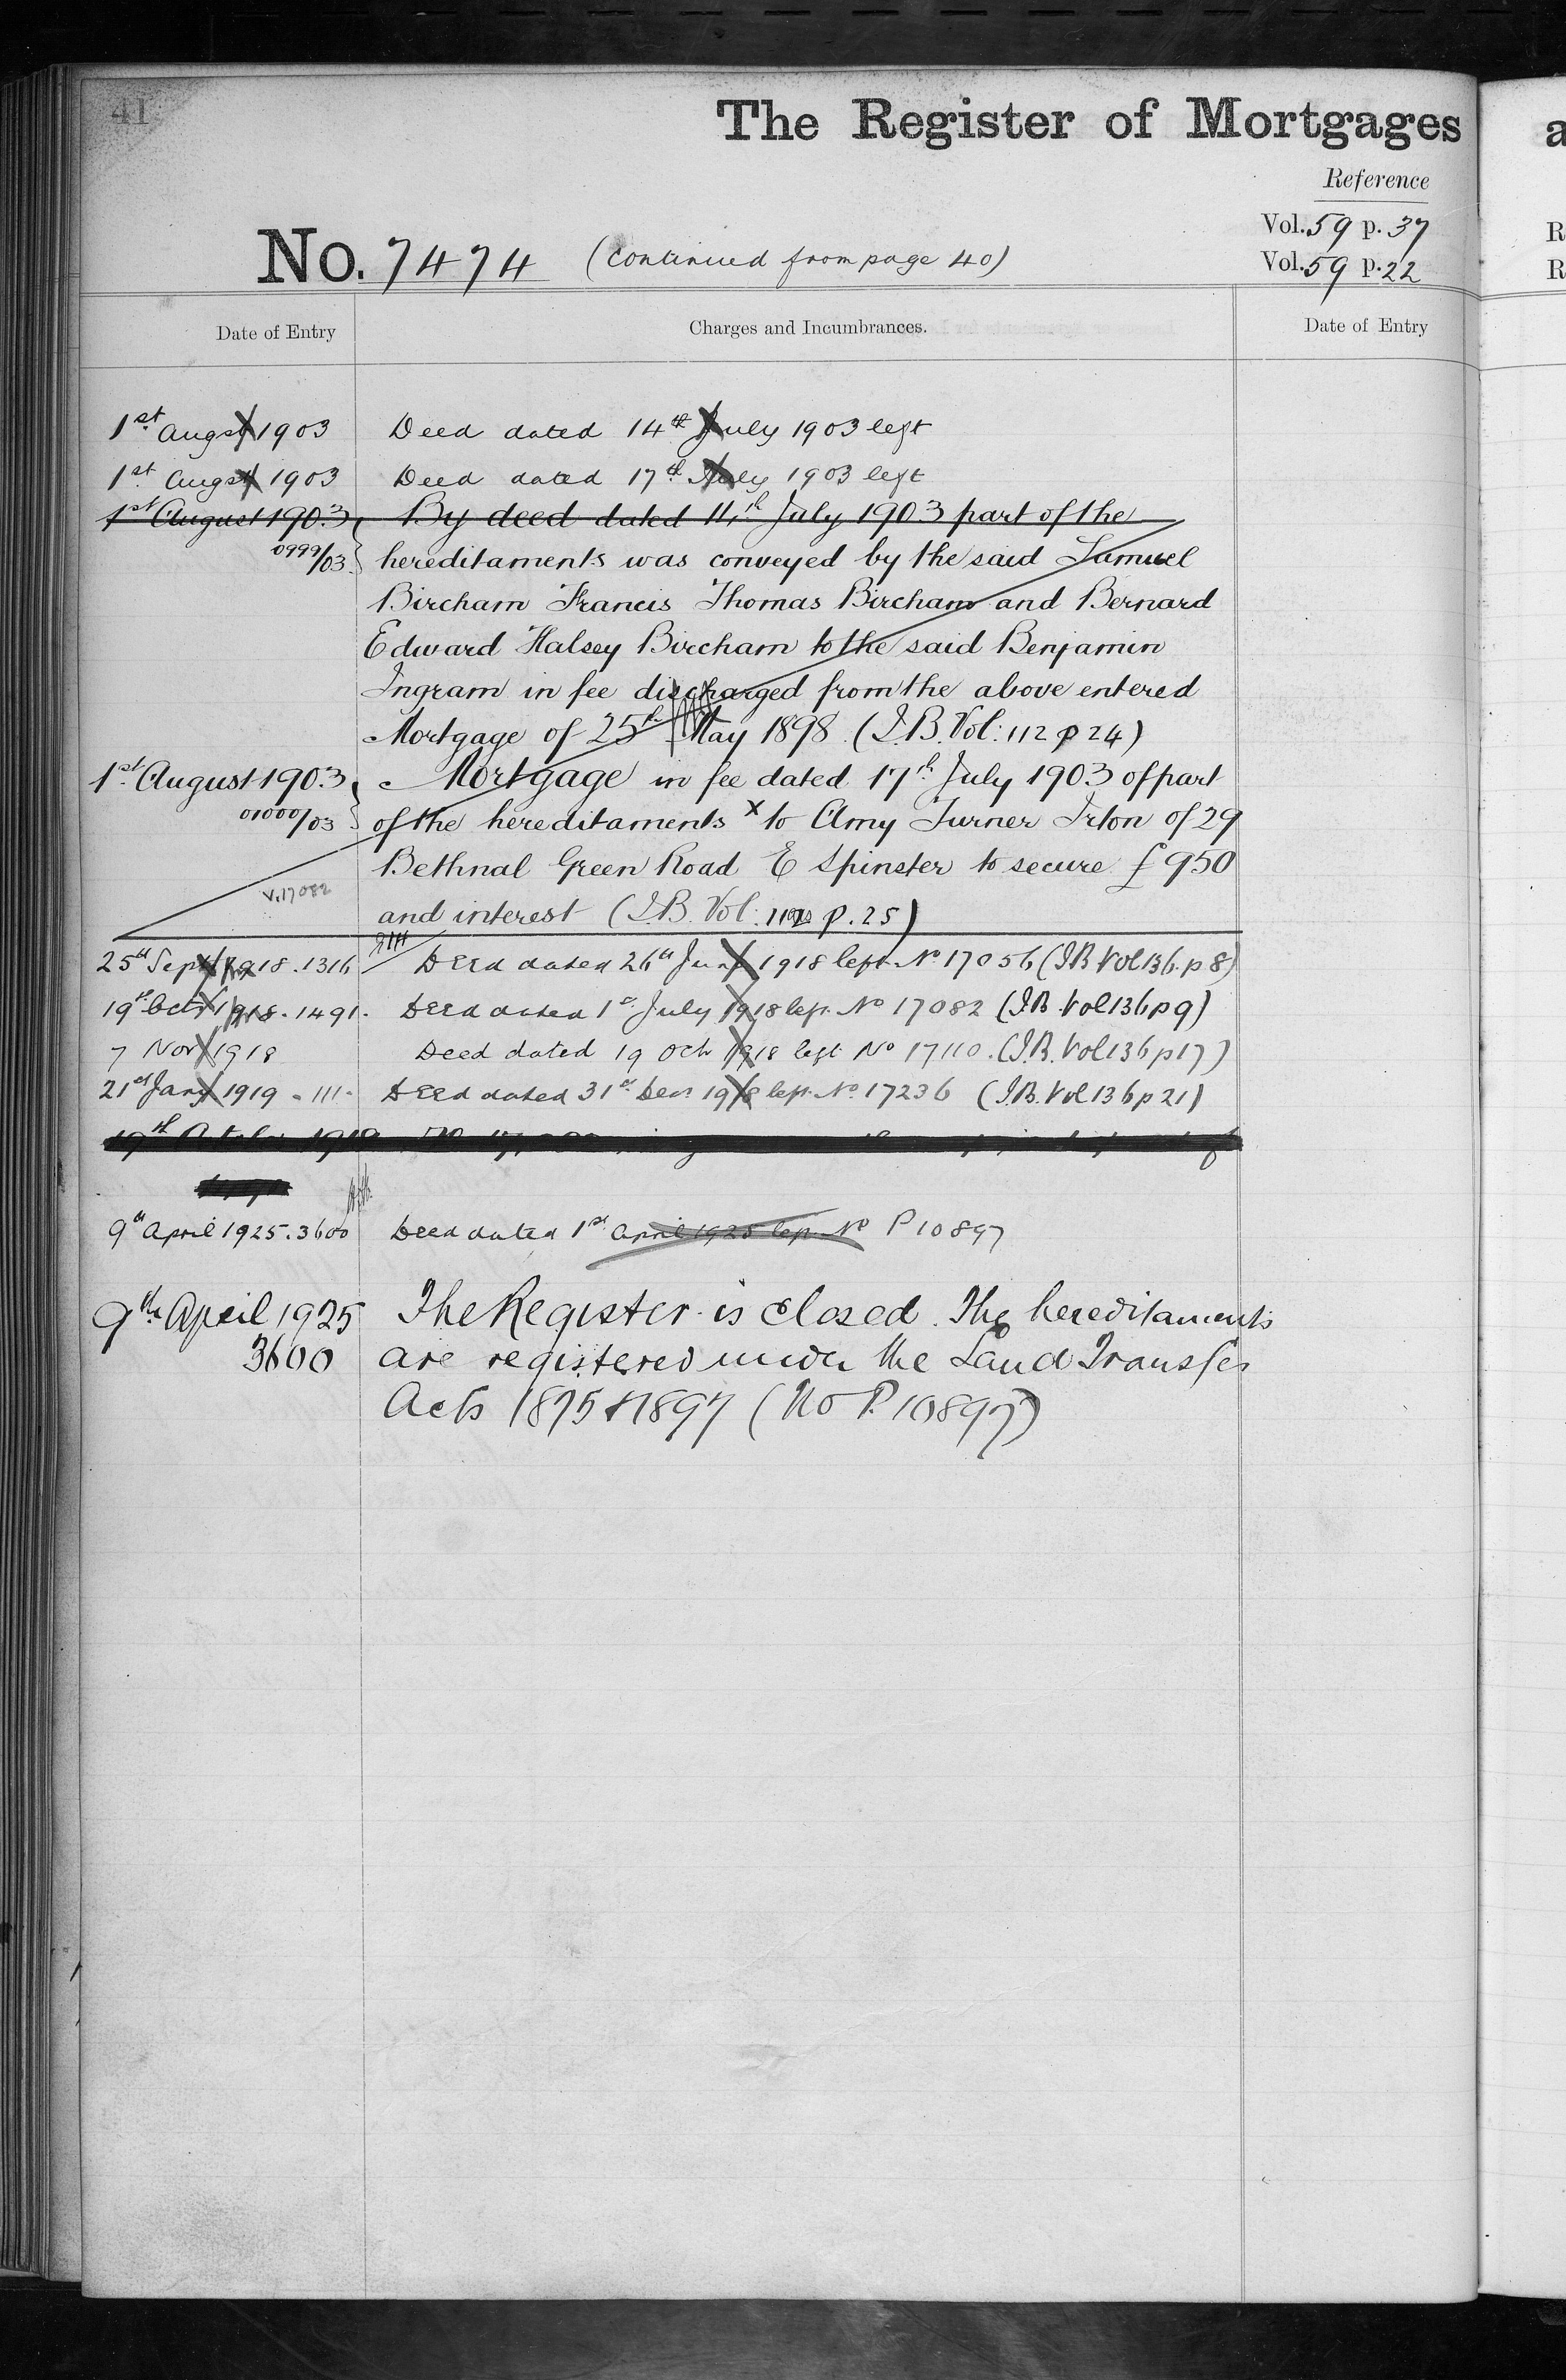 41
The Register of Mortgages
Reference
Vol. 59 p. 37
No. 7474 (Continued from page 40)
Vol. 59 p. 22
Date of Entry Charges and Incumbrances. Date of Entry
1st Augst 1903 Deed dated 14th July 1903 left
1st Augst 1903 Deed dated 17th July 1903 left
1st August 1903 By deed dated 14th July 1903 part of the
0999/03 hereditaments was conveyed by the said Samuel
Bircham Francis Thomas Bircham and Bernard
Edward Halsey Bircham to the said Benjamin
Ingram in fee discharged from the above entered
Mortgage of 25th May 1898 (I.B. Vol: 112 p 24)
1st August 1903 Mortgage in fee dated 17th July 1903 of part
01000/03 of the hereditaments x to Amy Turner Irton of 29
Bethnal Green Road E Spinster to secure £950
V.17082
and interest (I.B. Vol: 112 p. 25)
25th Sept 1918. 1316 Deed dated 26th June 1918 left No 17056 (I.B Vol 136. p 8)
19th Oct 1918. 1491. Deed dated 1st July 1918 left No 17082 (I.B. Vol 136 p 9)
7 Nov 1918 Deed dated 19 Oct 1918 left No 17110. (I.B. Vol 136 p 17)
21st Jany 1919. 111. Deed dated 31st Decr 1918 left No 17236 (I.B. Vol 136 p 21)
9th April 1925. 3600 Deed dated 1st April 1925 left No P 10897
9th April 1925 The Register is closed. The hereditaments
3600 are registered under the Land Transfer
Acts 1875 & 1897 (No P. 10897)
a
R
R